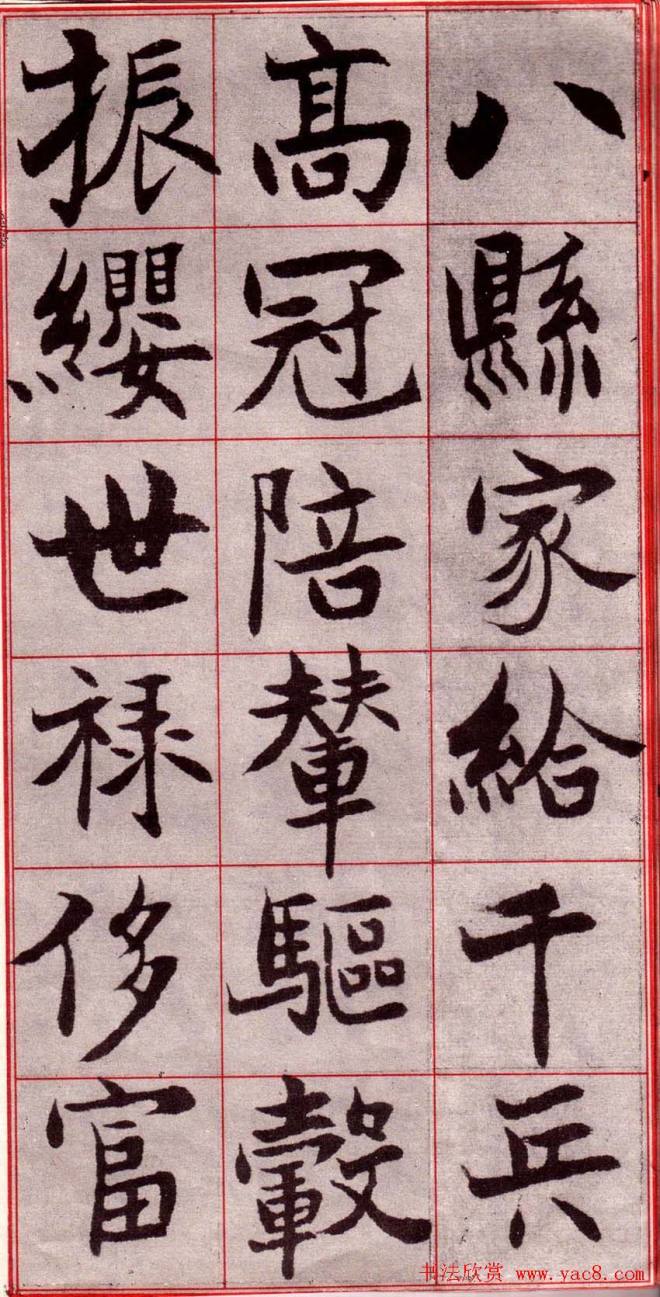 八縣家給千兵
髙冠陪輦驅轂
振纓世禄侈富
书法欣赏 www.yac8.com